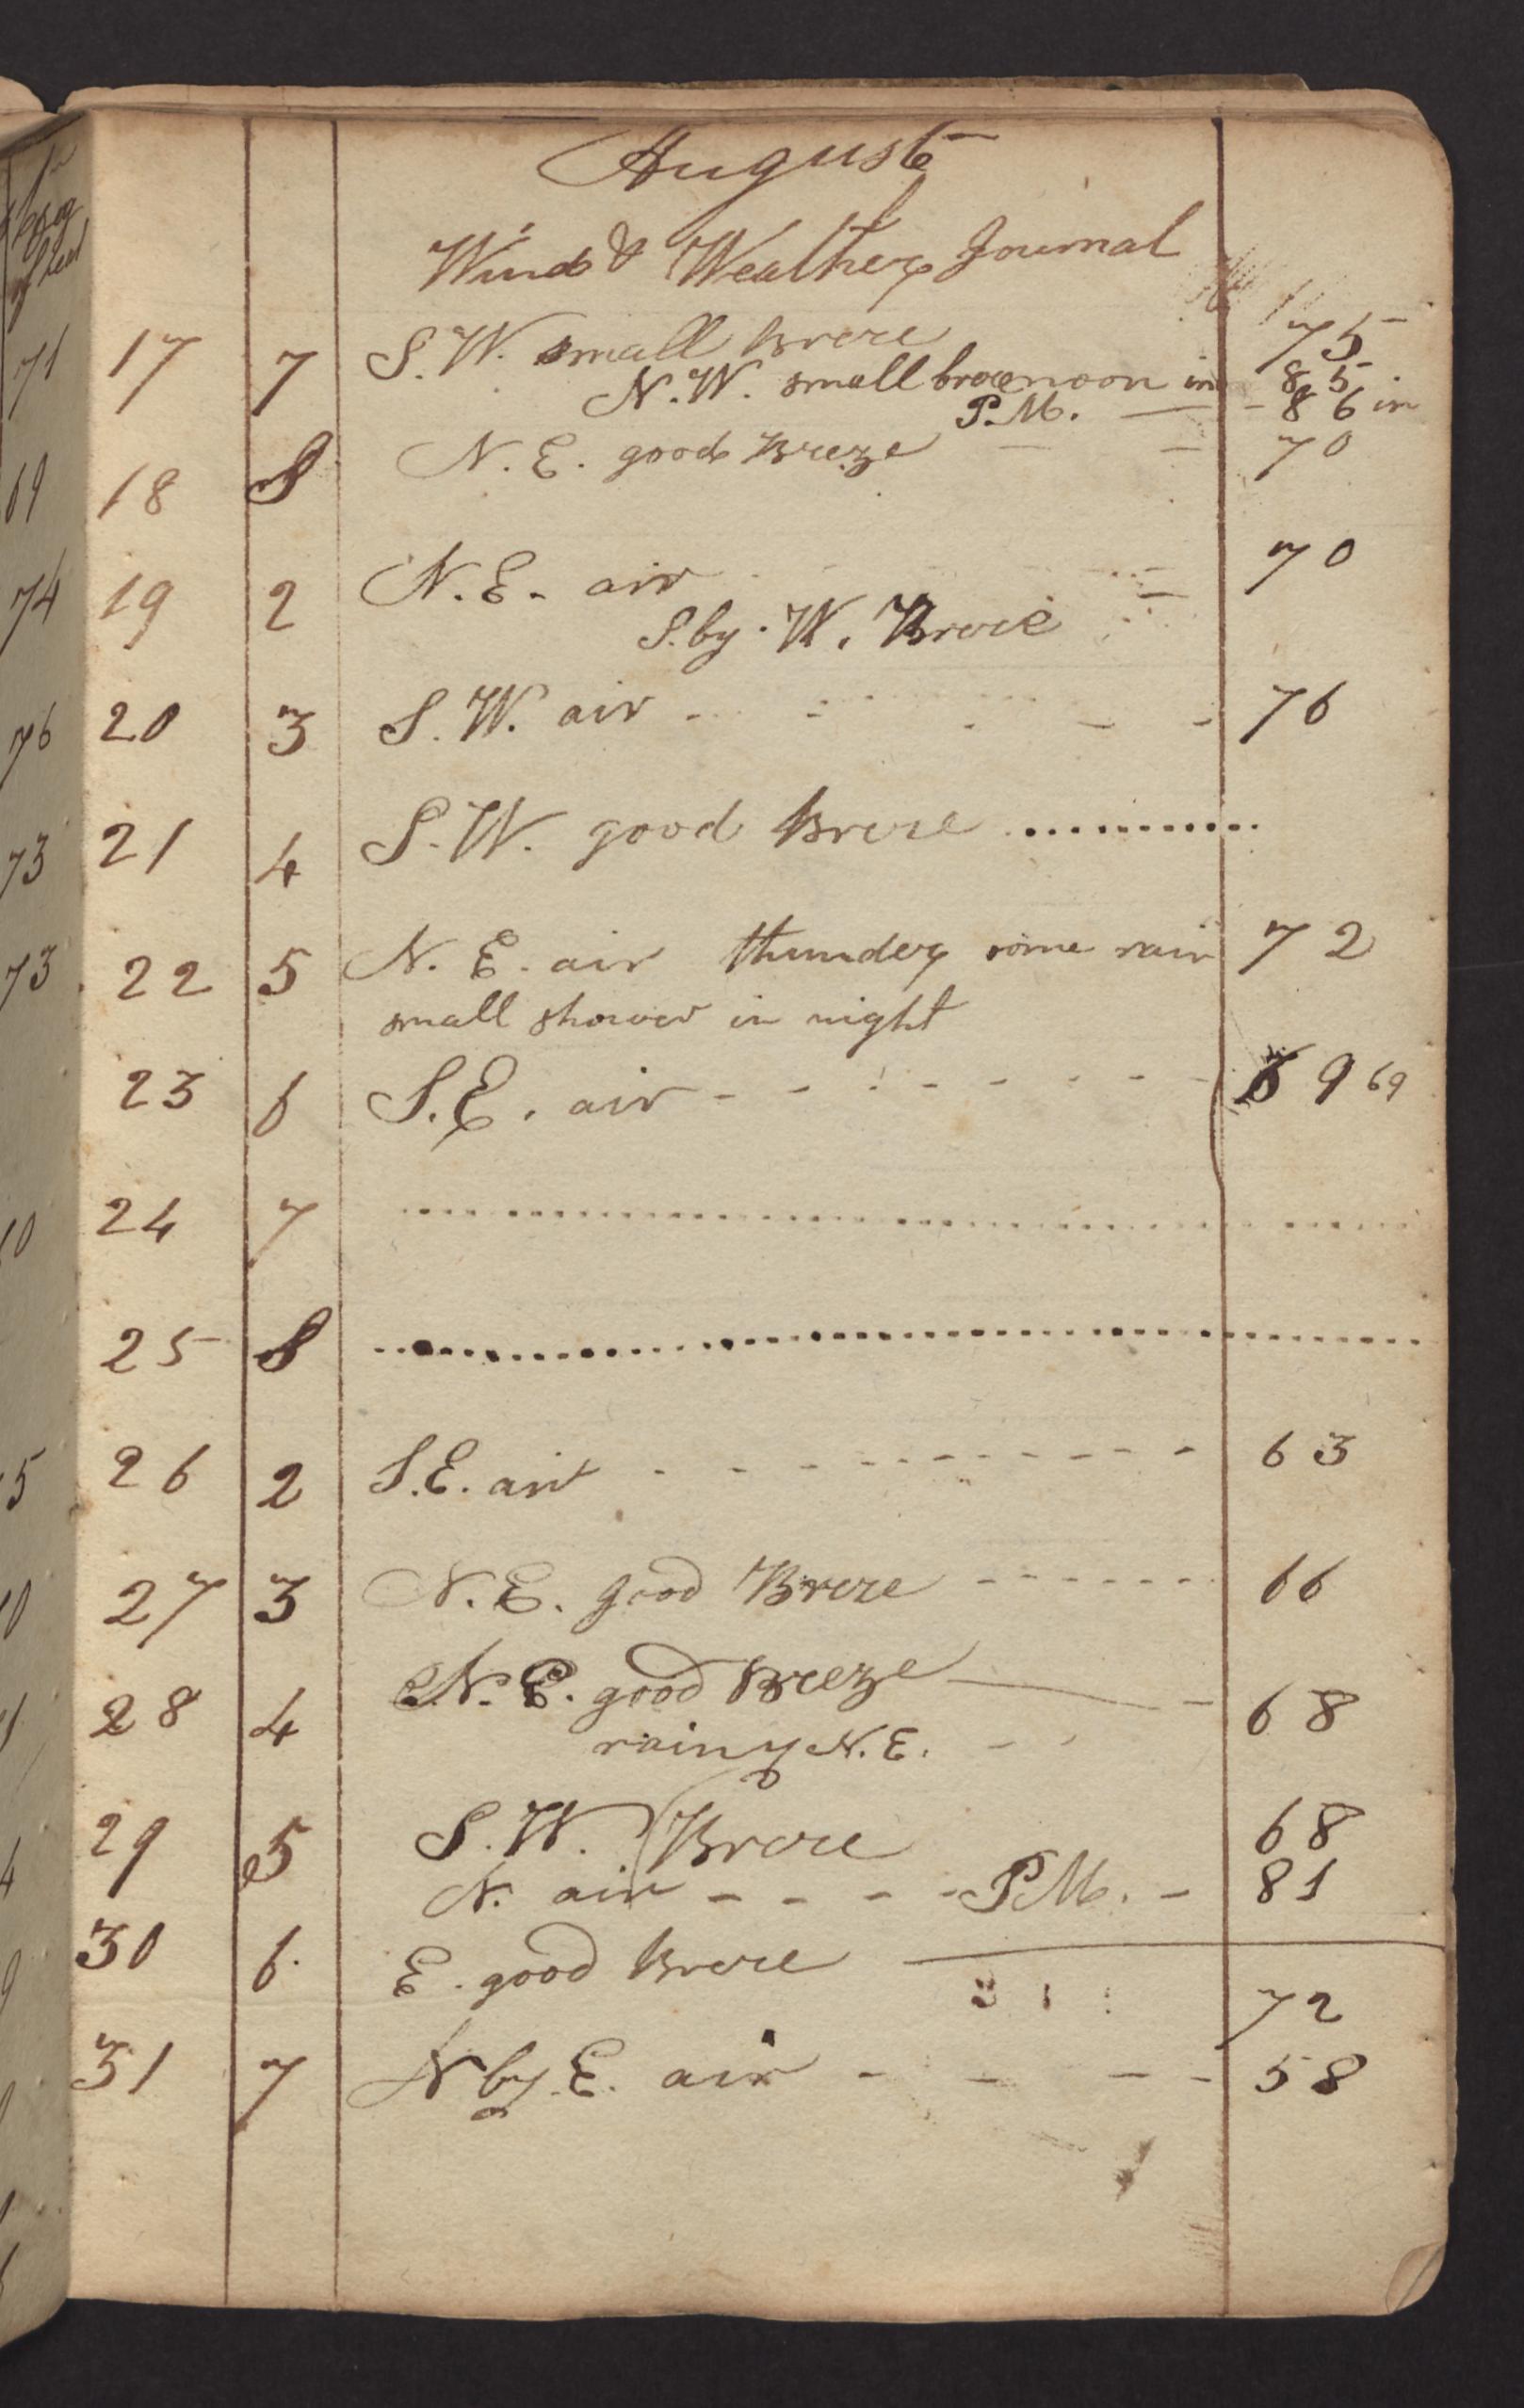 August
Wind & Weather Journal
17 7 S.W. small Breze 75
N.W. small breze noon in 85
P.M. — - 86 in
18 S N.E. good Breze - - 70
19 2 N.E. air - 70
S. by W. Breze
20 3 S.W. air - - - - - 76
21 4 S.W. good Breze ............
22 5 N.E. air thunder some rain 72
small shower in night
23 6 S.E. air - - - - - - - - 69 69
24 7 ....................
25 S ....................
26 2 S.E. air - - - - - - - - - 63
27 3 N.E. good Breze - - - - - - 66
28 4 N.E. good Breze — - 68
rainy N.E. - -
29 5 S.W. Breze 68
N. air - - - - P.M. - 81
30 6. E. good Breze —
72
31 7 N by E. air - - - - 58
71
69
74
76
73
73